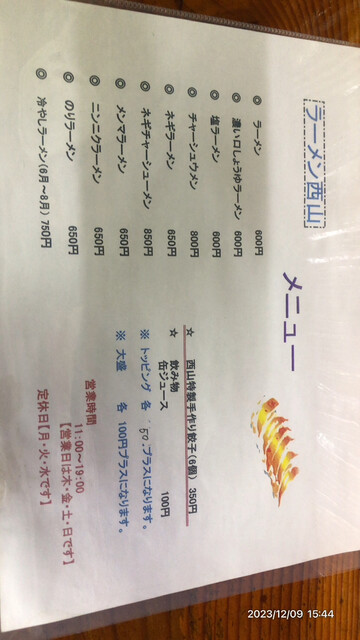 ラーメン西山
メニュー
◎ ラーメン 600円
◎ 濃い口しょうゆラーメン 600円
◎ 塩ラーメン 600円
◎ チャーシュウメン 800円
◎ ネギラーメン 650円
◎ ネギチャーシューメン 850円
◎ メンマラーメン 650円
◎ ニンニクラーメン 650円
◎ のりラーメン 650円
◎ 冷やしラーメン(6月～8月) 750円
☆ 西山特製手作り餃子(6個) 350円
☆ 飲み物
缶ジュース 100円
※ トッピング 各 50 プラスになります。
※ 大盛 各 100円プラスになります。
営業時間
11:00～19:00
【営業日は木・金・土・日です】
定休日【月・火・水です】
2023/12/09 15:44